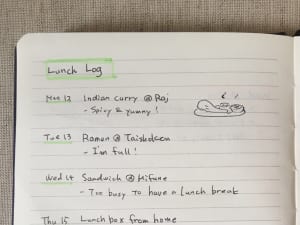 Lunch Log
Mon 12 Indian curry @ Raj
- Spicy & yummy!
Tue 13 Ramen @ Taishoken
- I'm full!
Wed 14 Sandwich @ Mifune
- Too busy to have a lunch break
Thu 15 Lunch box from home